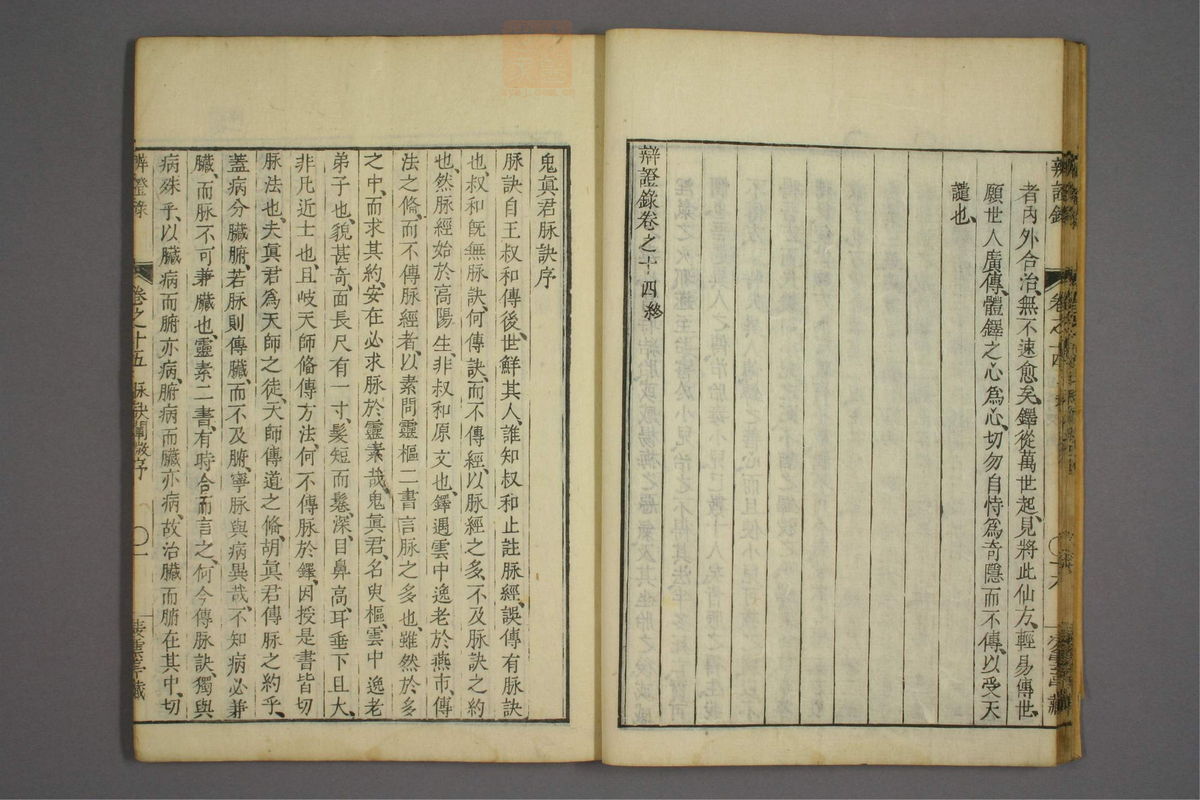 辨證錄
卷之十四
者內外合治、無不速愈矣、鐸從萬世起見、將此仙方、輕易傳世、
願世人廣傳、體鐸之心爲心、切勿自恃爲奇隱而不傳、以受天
譴也、
辯證錄卷之十四終
鬼眞君脉訣序
脉訣自王叔和傳後、世鮮其人、誰知叔和止註脉經、誤傳有脉訣
也、叔和旣無脉訣、何傳訣、而不傳經、以脉經之多、不及脉訣之約
也、然脉經始於高陽生、非叔和原文也、鐸遇雲中逸老於燕市、傳
法之偹、而不傳脉經者、以素問靈樞二書言脉之多也、雖然於多
之中、而求其約、安在必求脉於靈素哉、鬼眞君、名臾樞、雲中逸老
弟子也、貌甚奇、面長尺有一寸、髪短而鬈、深目鼻高、耳垂下且大、
非凡近士也、且岐天師偹傳方法、何不傳脉於鐸、因授是書皆切
脉法也、夫眞君爲天師之徒、天師傳道之偹、胡眞君傳脉之約乎、
蓋病分臟腑、若脉則傳臟、而不及腑、寧脉與病異哉、不知病必兼
臟、而脉不可兼臟也、靈素二書、有時合而言之、何今傳脉訣、獨與
病殊乎、以臟病而腑亦病、腑病而臟亦病、故治臟而腑在其中、切
辨證錄
卷之十五
脉訣闡微序
〇一